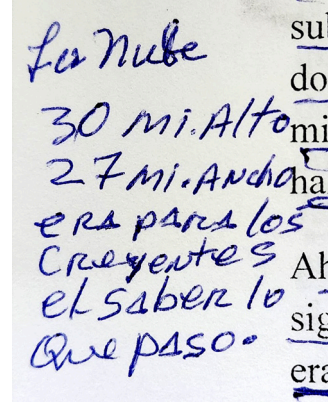 La Nube
30 mi. Alto
27 mi. Ancho
era para los
Creyentes
el saber lo
Que paso.
su
do
mi
ha
Ah
sig
era